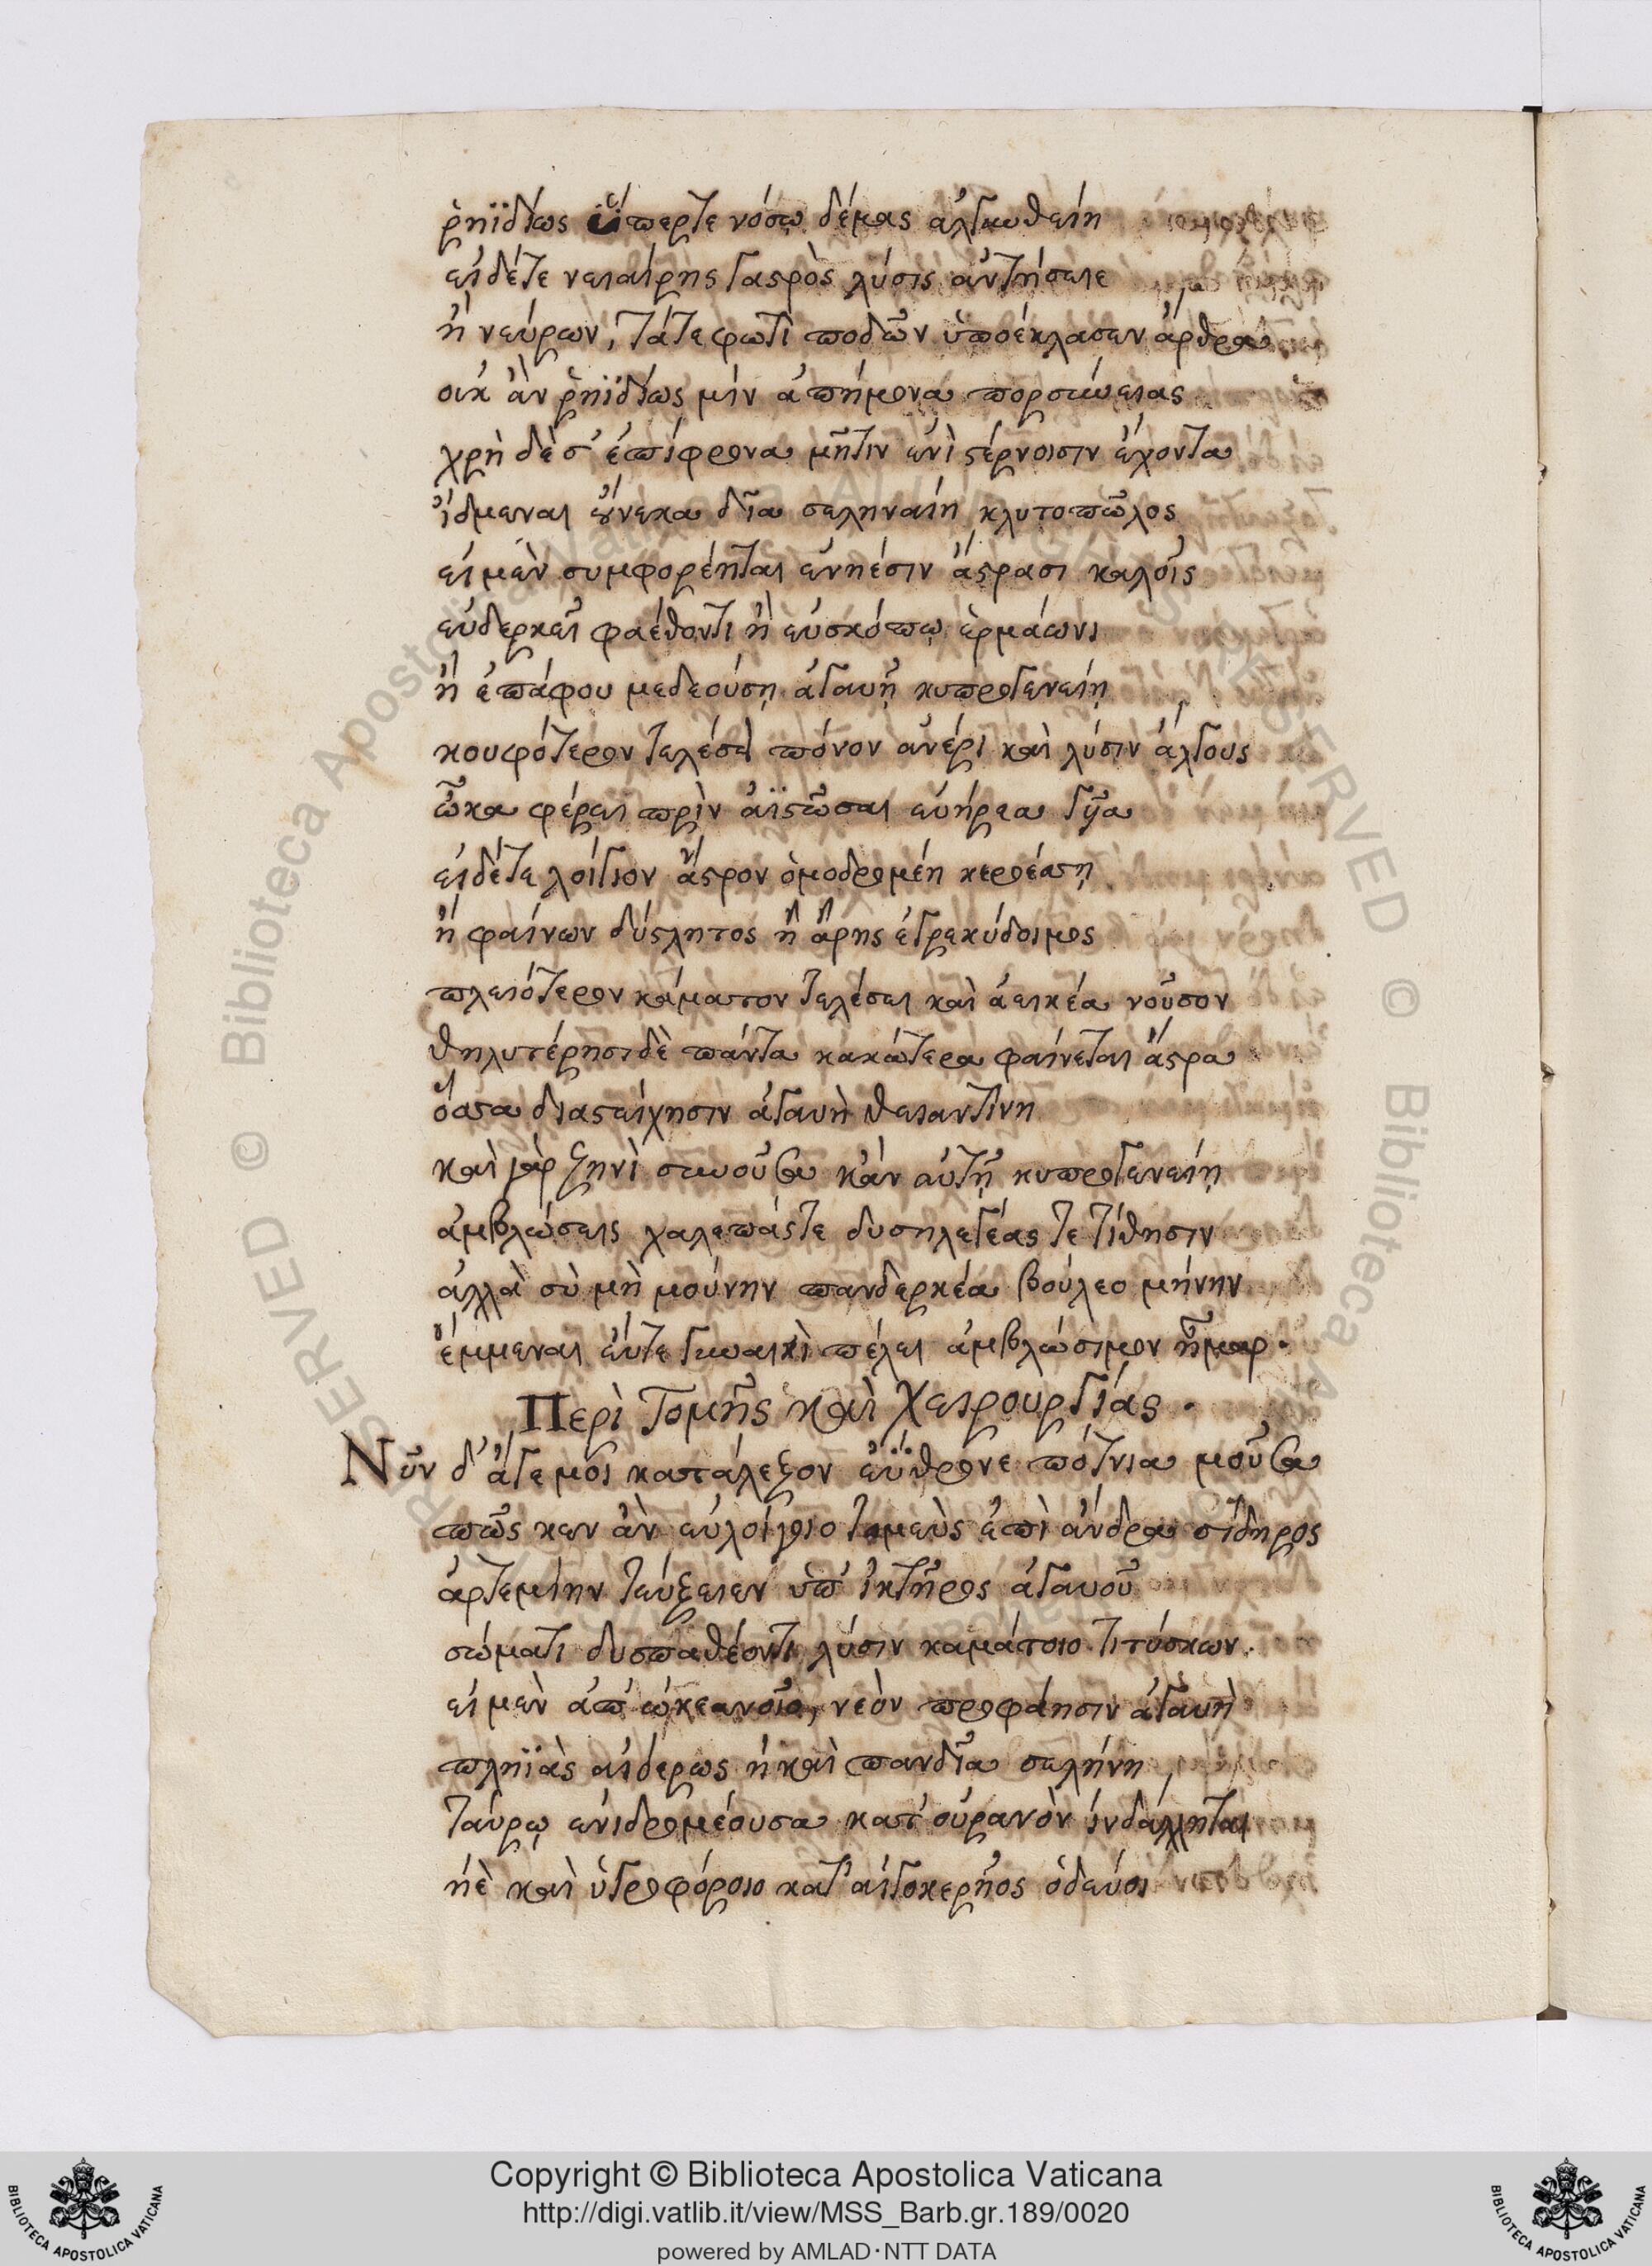 ῥηϊδίως ὕπερτε νόσῳ δέμας ἀλγυνθείη
εἰδέτε νειαίρης γαστρὸς λύσις ἀντήσειε
ἢ νεύρων, τάτε φωτὶ ποδῶν ὑποέκλασεν ἄρθρα
οὐκ ἂν ῥηϊδίως μὶν ἀπήμονα πορσύνειας
χρὴ δὲ σ' ἐπίφρονα μῆτιν ἐνὶ στέρνοισιν ἔχοντα
ἴδμεναι οὕνεκα δῖα σεληναίη κλυτοπῶλος
εἰ μὲν συμφορέηται ἐνηέσιν ἄστρασι καλοῖς
εὐδερκεῖ φαέθοντι ἢ εὐσκόπῳ ἑρμάωνι
ἢ ἐπάφου μεδεούσῃ ἀγαυῇ κυπρογενείῃ
κουφότερον τελέσει πόνον ἀνέρι καὶ λύσιν ἄλγους
ὦκα φέρει πρὶν ἀϊστῶσαι εὐήρεα γῦα
εἰδέτε λοίγιον ἄστρον ὁμοδρομέη κερέασῃ
ἢ φαίνων δύστλητος ἢ ἄρης ἐγρεκύδοιμος
πλειότερον κάματον τελέσει καὶ ἀεικέα νοῦσον
θηλυτέρησι δὲ πάντα κακώτερα φαίνεται ἄστρα
ὅσσα διαστείχησιν ἀγαυὴ θειαντίνη
καὶ γὰρ ζηνὶ συνοῦσα κἂν αὐτῇ κυπρογενείῃ
ἀμβλώσεις χαλεπάς τε δυσηλεγέας τε τίθησιν
ἀλλὰ σὺ μὴ μούνην πανδερκέα βούλεο μήνην
ἔμμεναι εὖτε γυναικὶ πέλει ἀμβλώσιμον ἦμαρ.
Περὶ Τομῆς καὶ Χειρουργίας.
Νῦν δ' ἄγε μοι κατάλεξον ἐΰθρονε πότνια μοῦσα
πῶς κεν ἂν εὐλοίγοιο τομεὺς ἐπὶ ἄνδρα σίδηρος
ἀρτεμίην τεύξειεν ὑπ' ἰητῆρος ἀγαυοῦ
σώματι δυσπαθέοντι λύσιν καμάτοιο τιτύσκων.
εἰ μὲν ἀπ' ὠκεανοῖο, νεὸν προφάησιν ἀγαυὴ
πληϊὰς αἴδερως ἠ καὶ πανδῖα σελήνη
ταύρῳ ἐνιδρομέουσα κατ' οὐρανὸν ἰνδάλληται
ἠὲ καὶ ὑδροφόροιο κατ' αἰγοκερῆος ὁδεύσι
Copyright © Biblioteca Apostolica Vaticana
http://digi.vatlib.it/view/MSS_Barb.gr.189/0020
powered by AMLAD·NTT DATA